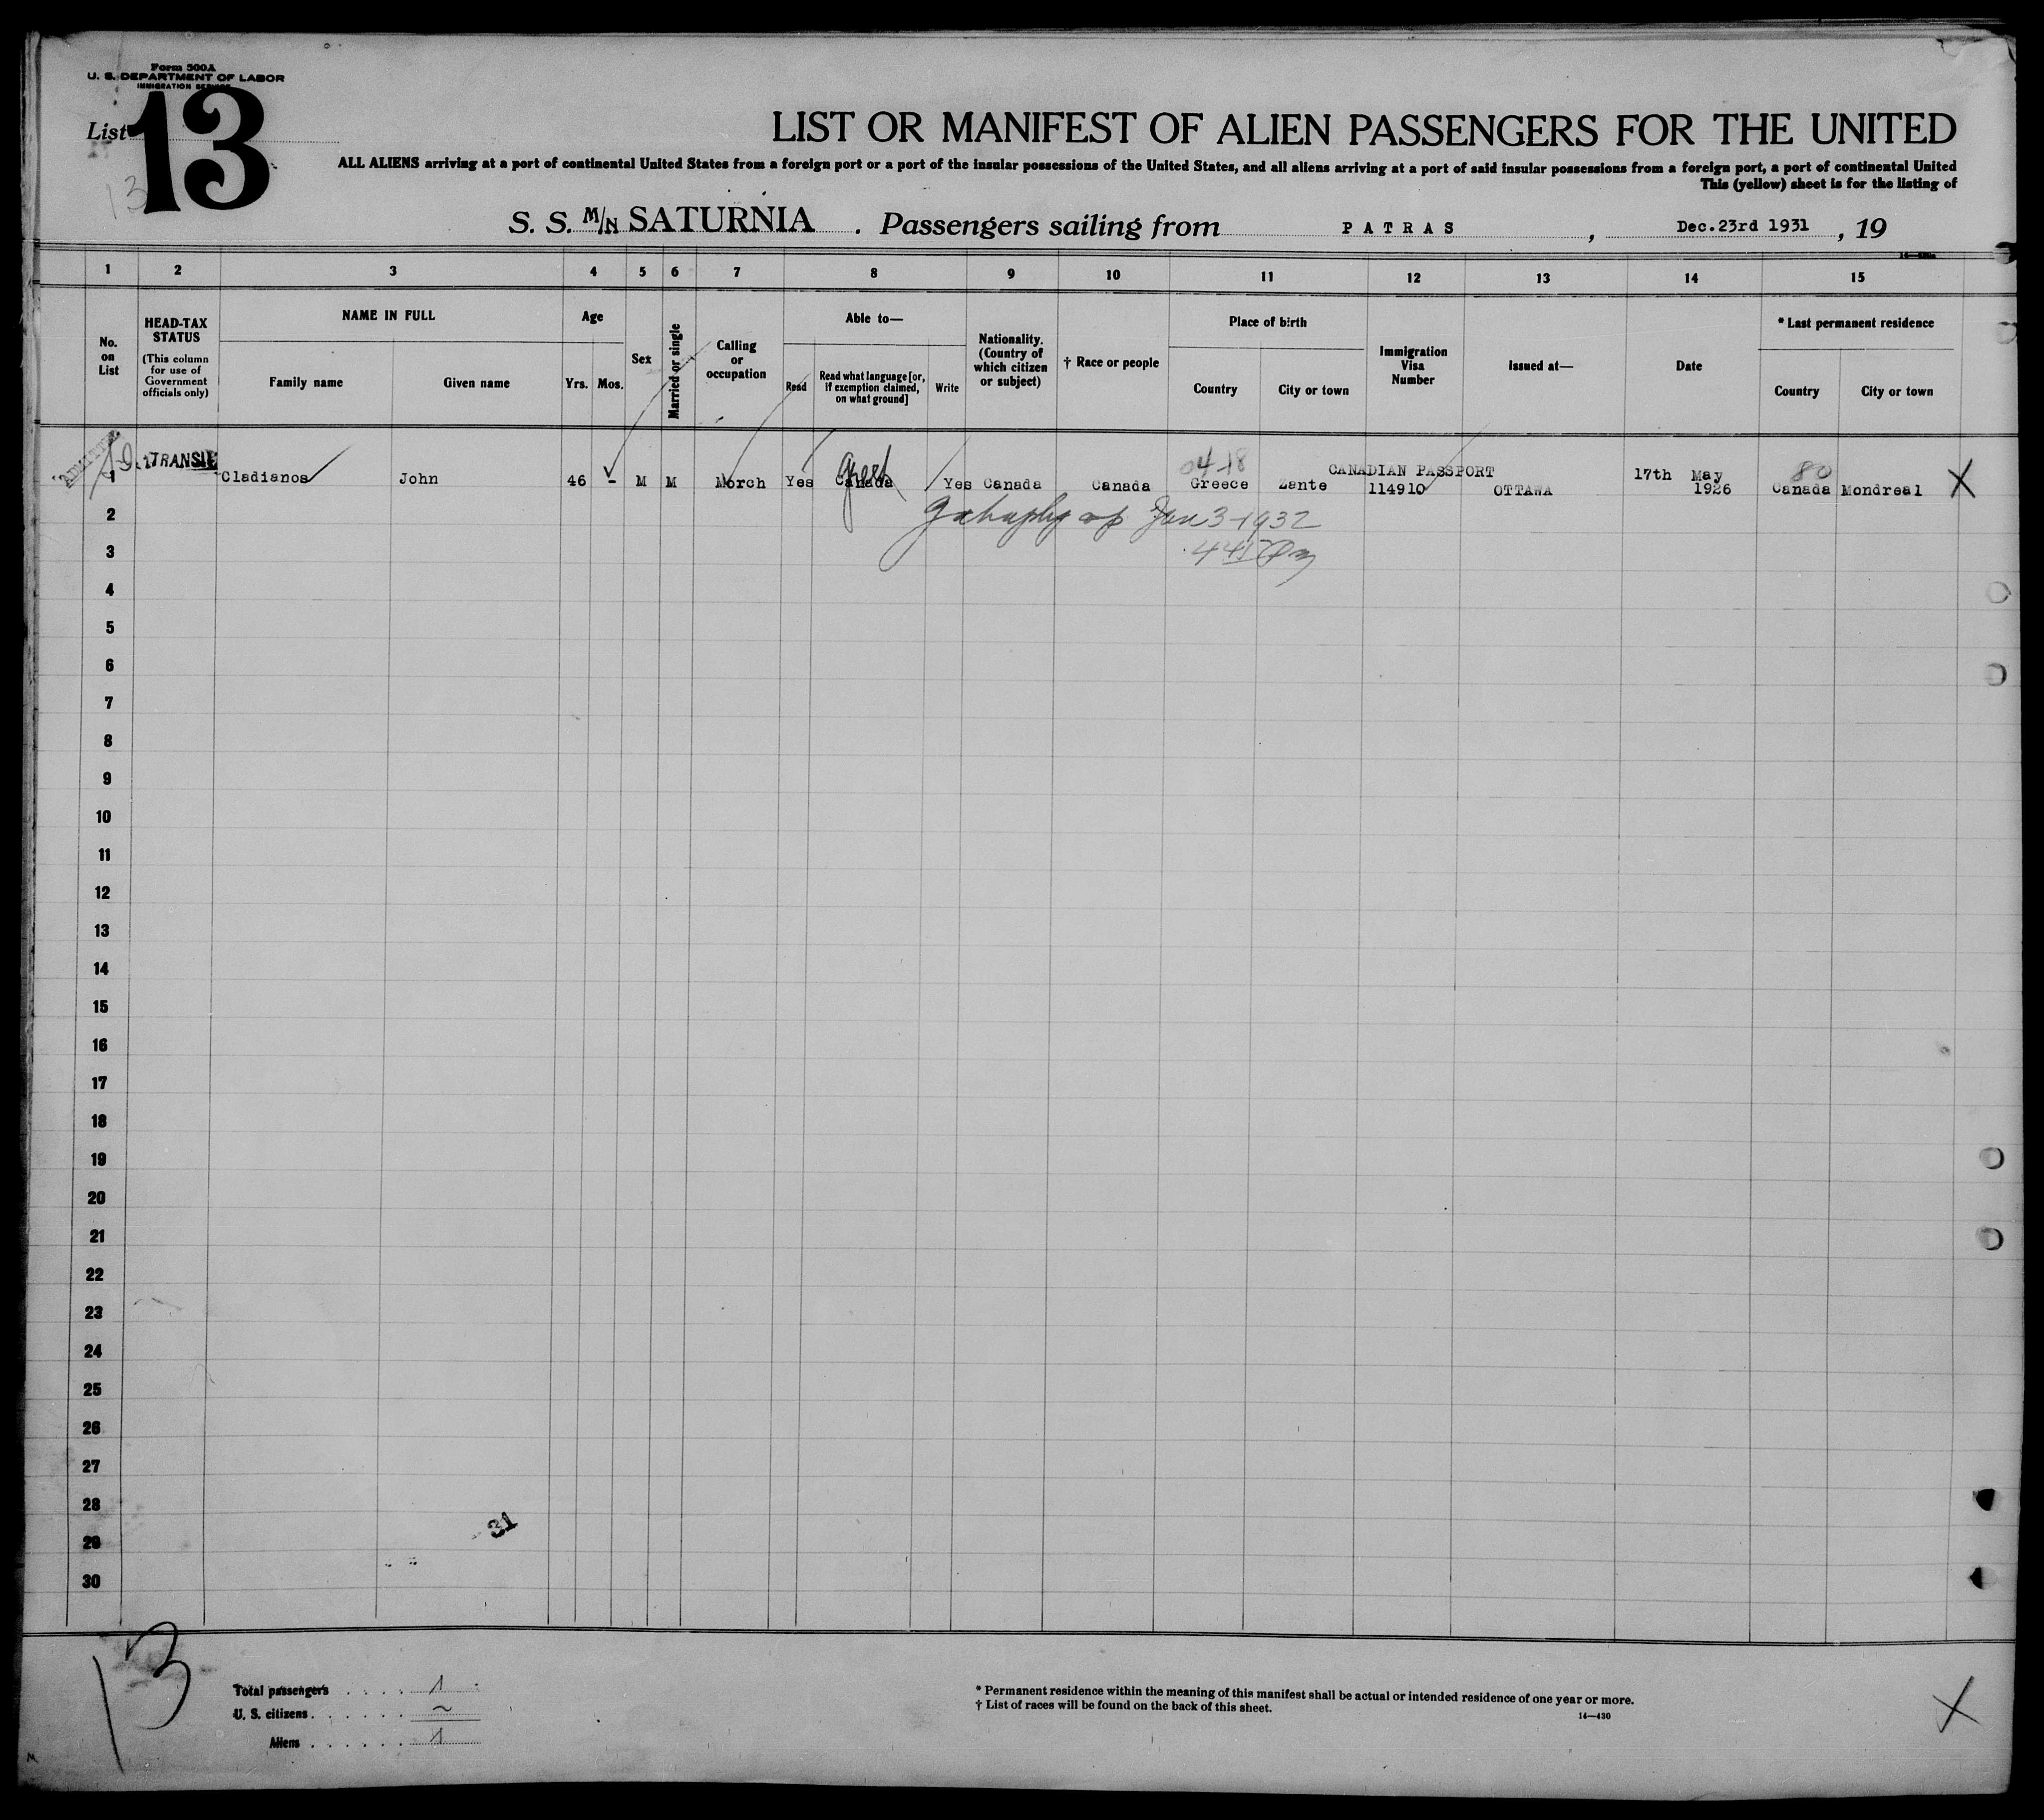 Form 500A
U. S. DEPARTMENT OF LABOR
IMMIGRATION SERVICE
List 13
13
LIST OR MANIFEST OF ALIEN PASSENGERS FOR THE UNITED
ALL ALIENS arriving at a port of continental United States from a foreign port or a port of the insular possessions of the United States, and all aliens arriving at a port of said insular possessions from a foreign port, a port of continental United
This (yellow) sheet is for the listing of
S. S. M/N SATURNIA . Passengers sailing from PATRAS , Dec.23rd 1931 , 19
1 2 3 4 5 6 7 8 9 10 11 12 13 14 15
No. on List
HEAD-TAX STATUS
(This column for use of Government officials only)
NAME IN FULL
Family name Given name
Age
Yrs. Mos.
Sex
Married or single
Calling or occupation
Able to—
Read
Read what language [or, if exemption claimed, on what ground]
Write
Nationality. (Country of which citizen or subject)
† Race or people
Place of birth
Country City or town
Immigration Visa Number
Issued at—
Date
* Last permanent residence
Country City or town
1 TRANSIT Cladianos John 46 - M M Morch Yes Canada Greek Yes Canada Canada 04-18 Greece Zante CANADIAN PASSPORT 114910 OTTAWA 17th May 1926 80 Canada Mondreal X
2 Jan 3-1932
3
4
5
6
7
8
9
10
11
12
13
14
15
16
17
18
19
20
21
22
23
24
25
26
27
28
31
29
30
13
Total passengers . . . . 1
U. S. citizens . . . . . . ~
Aliens . . . . . . 1
* Permanent residence within the meaning of this manifest shall be actual or intended residence of one year or more.
† List of races will be found on the back of this sheet.
14—430
X